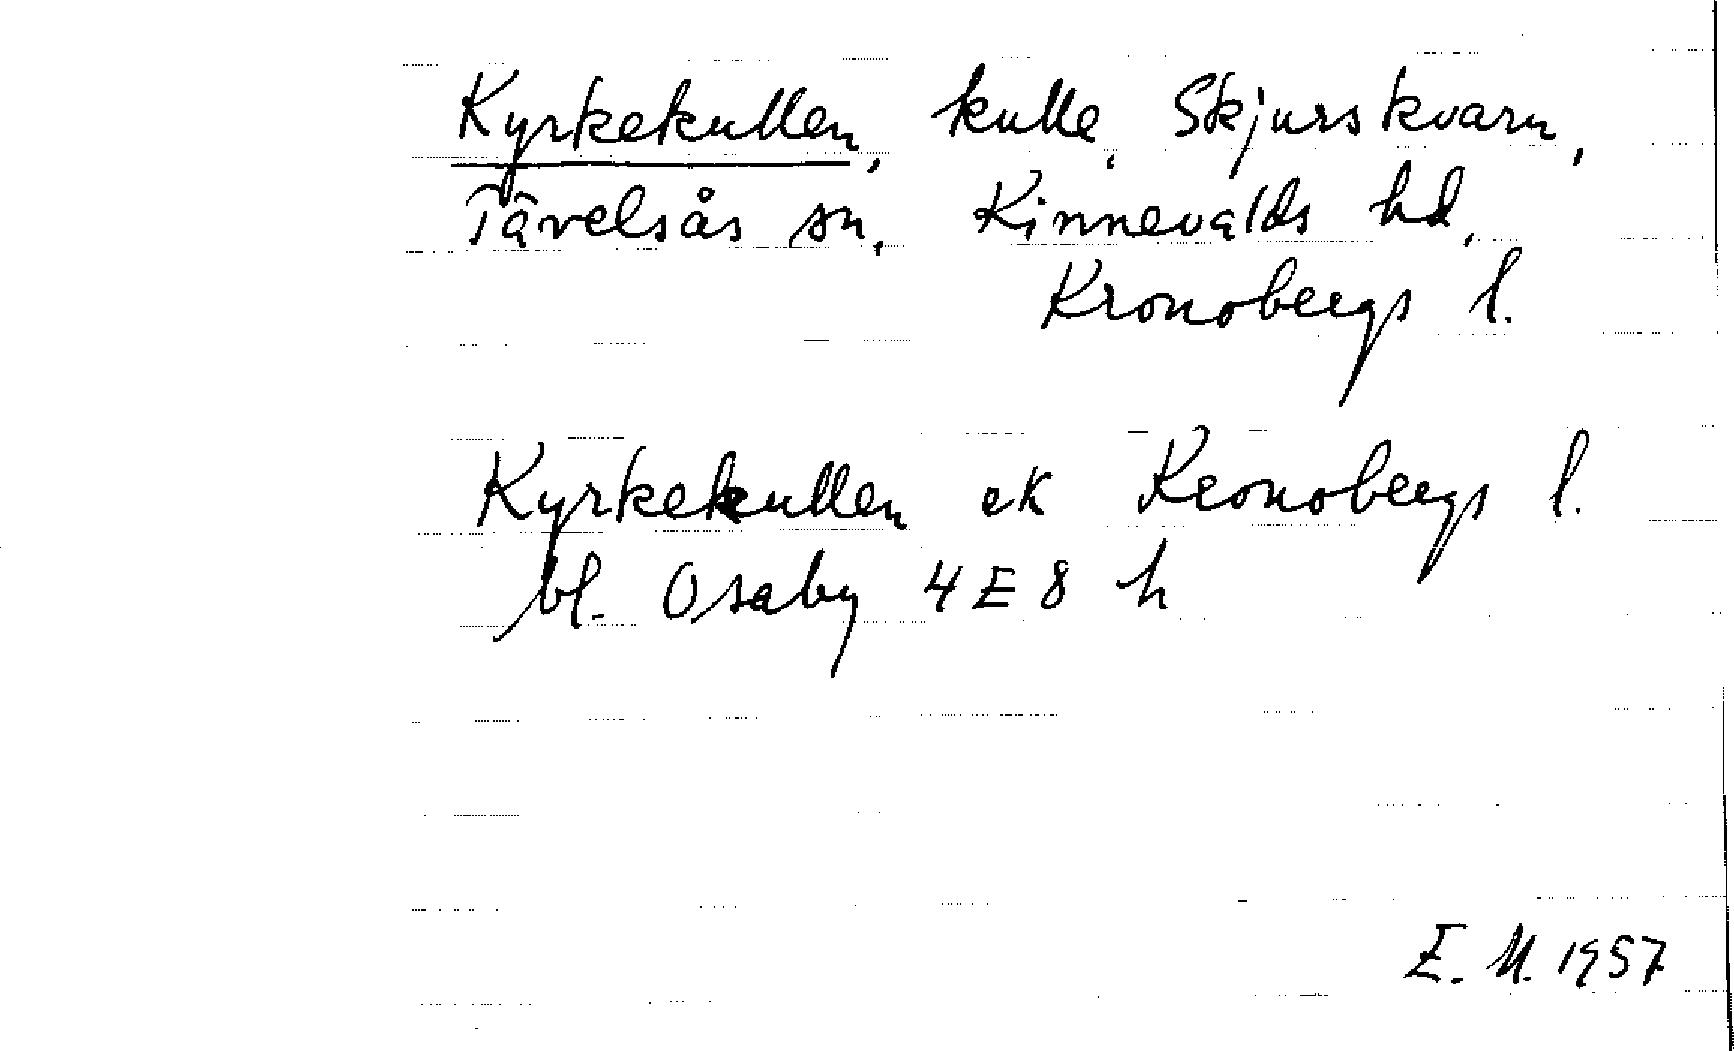 Kyrkekullen, kulle, Skjurskvarn,
Tävelsås sn, Kinnevalds hd,
Kronobergs l.
Kyrkekullen ek Kronobergs l.
bl. Osaby 4 E 8 h
E. M. 1957